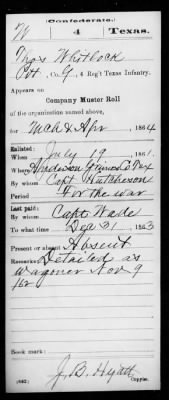 (Confederate.)
W 4 Texas.
Thos Whitlock
Pvt, Co. G, 4 Reg't Texas Infantry.
Appears on
Company Muster Roll
of the organization named above,
for Mch & Apr, 1864
Enlisted:
When July 19, 1861.
Where Anderson Grimes Co Tex
By whom Capt Hutcheson
Period For the war
Last paid:
By whom Capt Wade
To what time Dec 31, 1863
Present or absent Absent
Remarks: Detailed as
wagoner Nov 9
Book mark:
(642) J. B. Hyatt
Copyist.